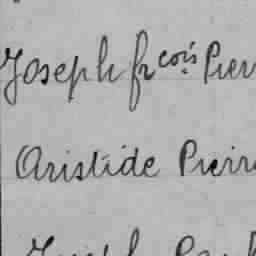 Joseph frcois Pier
Aristide Pierr
Joseph